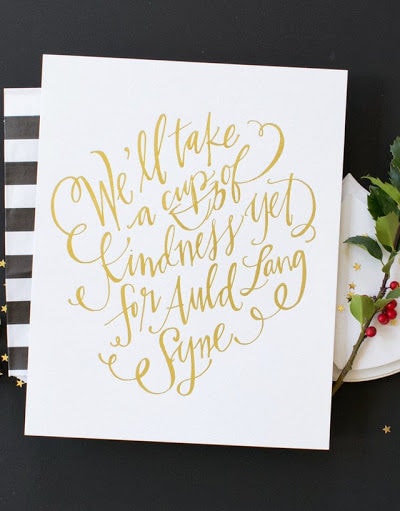 We'll take
a cup of
kindness yet
for Auld Lang
Syne.